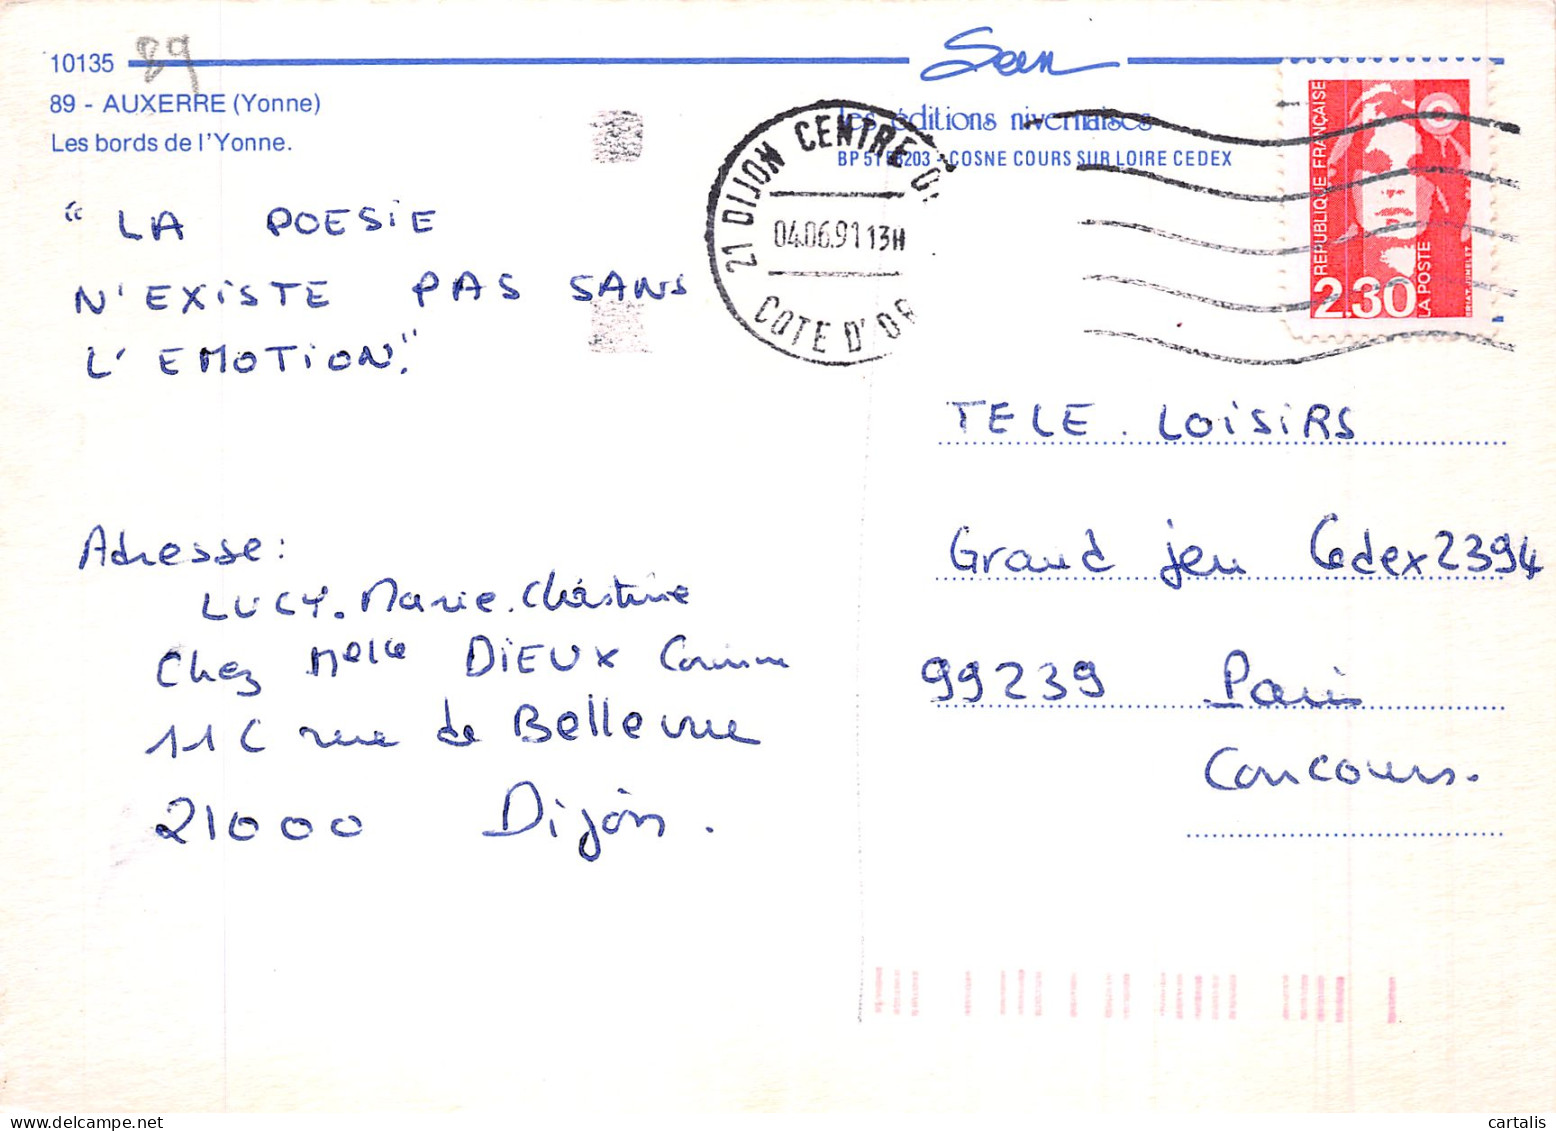 10135
89
89 - AUXERRE (Yonne)
Les bords de l'Yonne.
les éditions nivernaises
COSNE COURS SUR LOIRE CEDEX
21 DIJON CENTRE
04.06.91 13H
COTE D'OR
REPUBLIQUE FRANÇAISE
LA POSTE
2.30
“ LA POESIE
N'EXISTE PAS SANS
L'EMOTION."
Adresse:
LUCY. Marie. Christine
Chez Melle DIEUX Corinne
11 C rue de Bellevue
21000 Dijon.
TELE. LOISIRS
Grand jeu Cedex 2394
99239 Paris
Concours.
cartalis